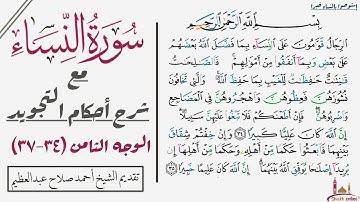 استوصوا بالنساء خيرا
بِسْمِ اللَّهِ الرَّحْمَٰنِ الرَّحِيمِ
سُورَةُ النِّسَاءِ
مع
شرح أحكام التجويد
الوجه الثامن (٣٤-٣٧)
تقديم الشيخ أحمد صلاح عبد العظيم
الرِّجَالُ قَوَّامُونَ عَلَى النِّسَاءِ بِمَا فَضَّلَ اللَّهُ بَعْضَهُمْ
عَلَىٰ بَعْضٍ وَبِمَا أَنفَقُوا مِنْ أَمْوَالِهِمْ فَالصَّالِحَاتُ
قَانِتَاتٌ حَافِظَاتٌ لِّلْغَيْبِ بِمَا حَفِظَ اللَّهُ وَاللَّاتِي تَخَافُونَ
نُشُوزَهُنَّ فَعِظُوهُنَّ وَاهْجُرُوهُنَّ فِي الْمَضَاجِعِ
وَاضْرِبُوهُنَّ فَإِنْ أَطَعْنَكُمْ فَلَا تَبْغُوا عَلَيْهِنَّ سَبِيلًا
إِنَّ اللَّهَ كَانَ عَلِيًّا كَبِيرًا (٣٤) وَإِنْ خِفْتُمْ شِقَاقَ
بَيْنِهِمَا فَابْعَثُوا حَكَمًا مِّنْ أَهْلِهِ وَحَكَمًا مِّنْ أَهْلِهَا إِن
يُرِيدَا إِصْلَاحًا يُوَفِّقِ اللَّهُ بَيْنَهُمَا إِنَّ اللَّهَ كَانَ عَلِيمًا خَبِيرًا (٣٥)